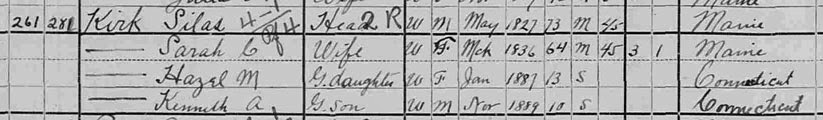 261 281 Kirk Silas Head 2 R W M May 1827 73 M 45 Maine
— Sarah C Wife W F Mch 1836 64 M 45 3 1 Maine
— Hazel M G. daughter W F Jan 1887 13 S Connecticut
— Kenneth A, G. Son W M Nov 1889 10 S Connecticut